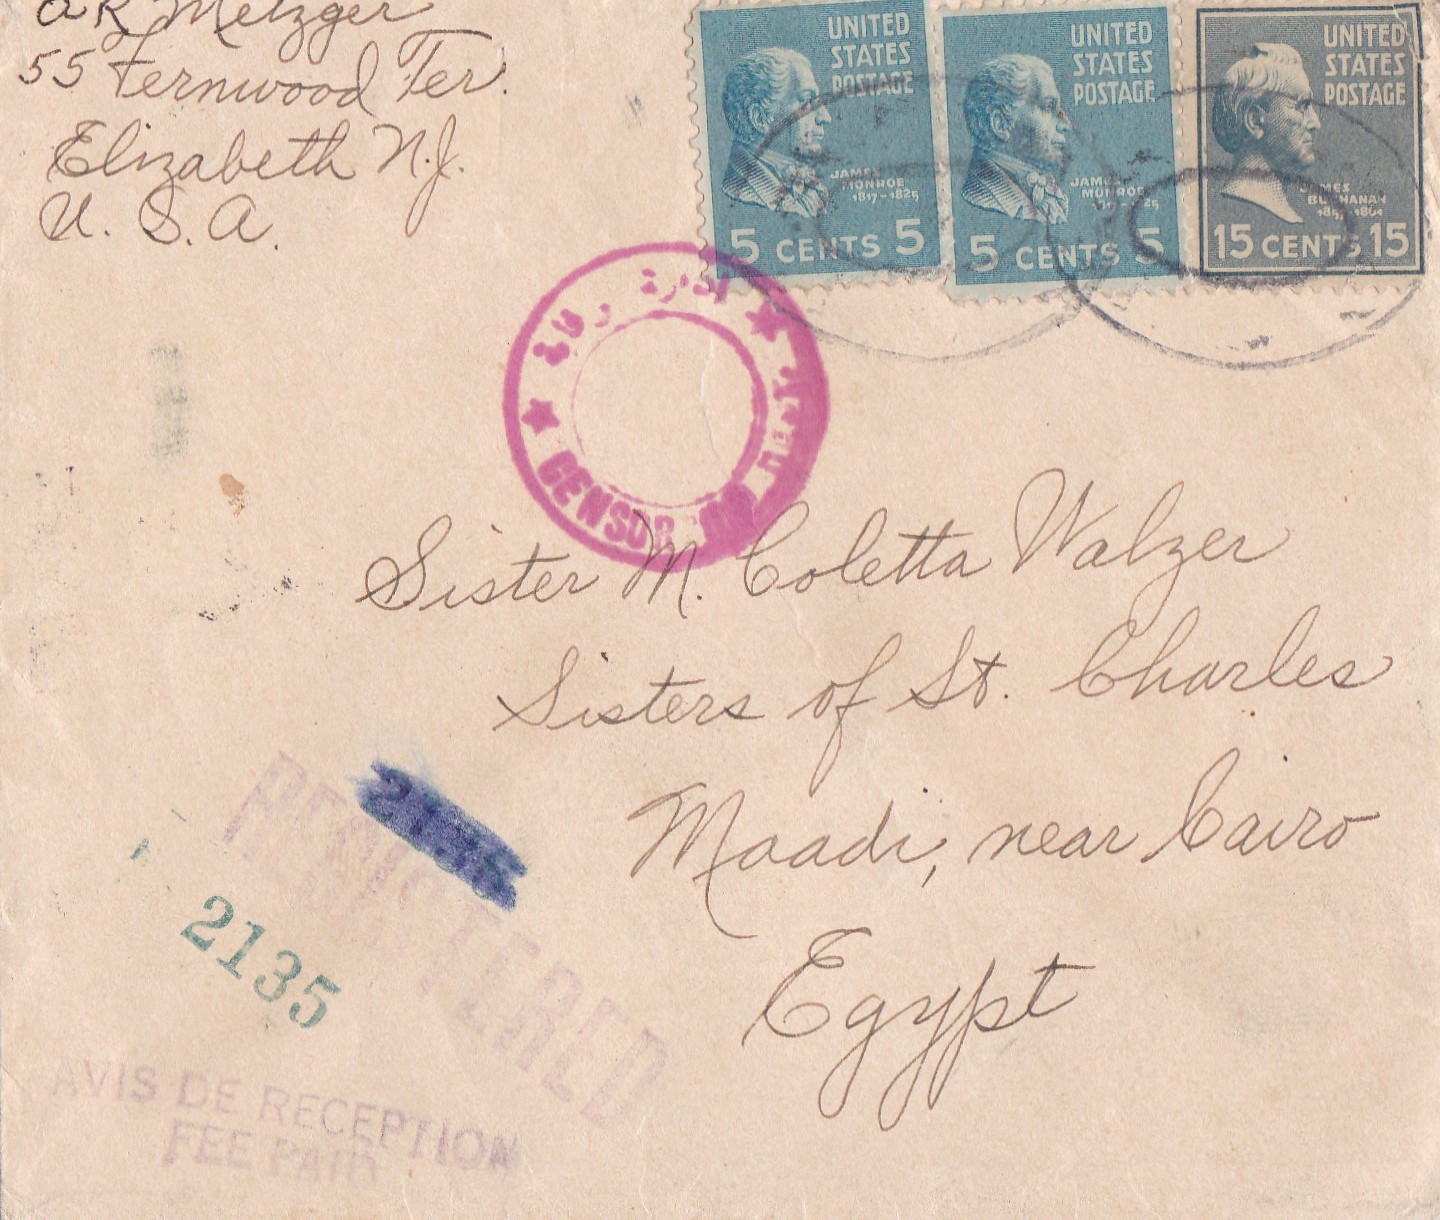 AR Metzger
55 Fernwood Ter.
Elizabeth N.J.
U. S. A.
UNITED
STATES
POSTAGE
JAMES
MONROE
1817-1825
5 CENTS 5
UNITED
STATES
POSTAGE
JAMES
MONROE
5 CENTS 5
UNITED
STATES
POSTAGE
JAMES
BUCHANAN
1857-1861
15 CENTS 15
CENSOR
Sister M. Coletta Walzer
Sisters of St. Charles
Maadi, near Cairo
Egypt
REGISTERED
2135
AVIS DE RECEPTION
FEE PAID